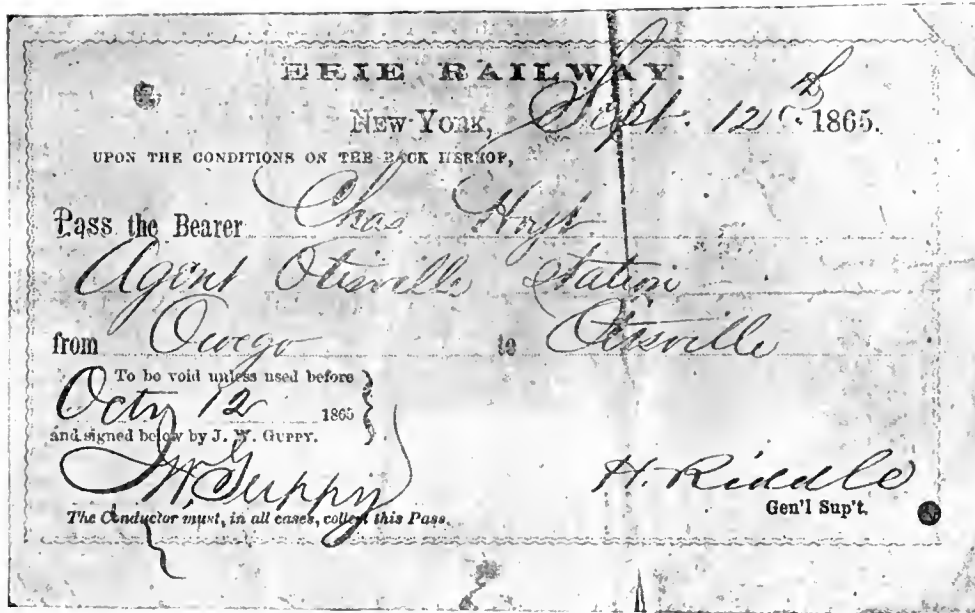 ERIE RAILWAY.
NEW YORK, Sept. 12th 1865.
UPON THE CONDITIONS ON THE BACK HEREOF,
Pass the Bearer Chas Hoyt
Agent Otisville Station
from Owego to Otisville
To be void unless used before
Octr 12 1865
and signed below by J. W. GUPPY.
J W Guppy
H. Riddle
Gen'l Sup't.
The Conductor must, in all cases, collect this Pass.